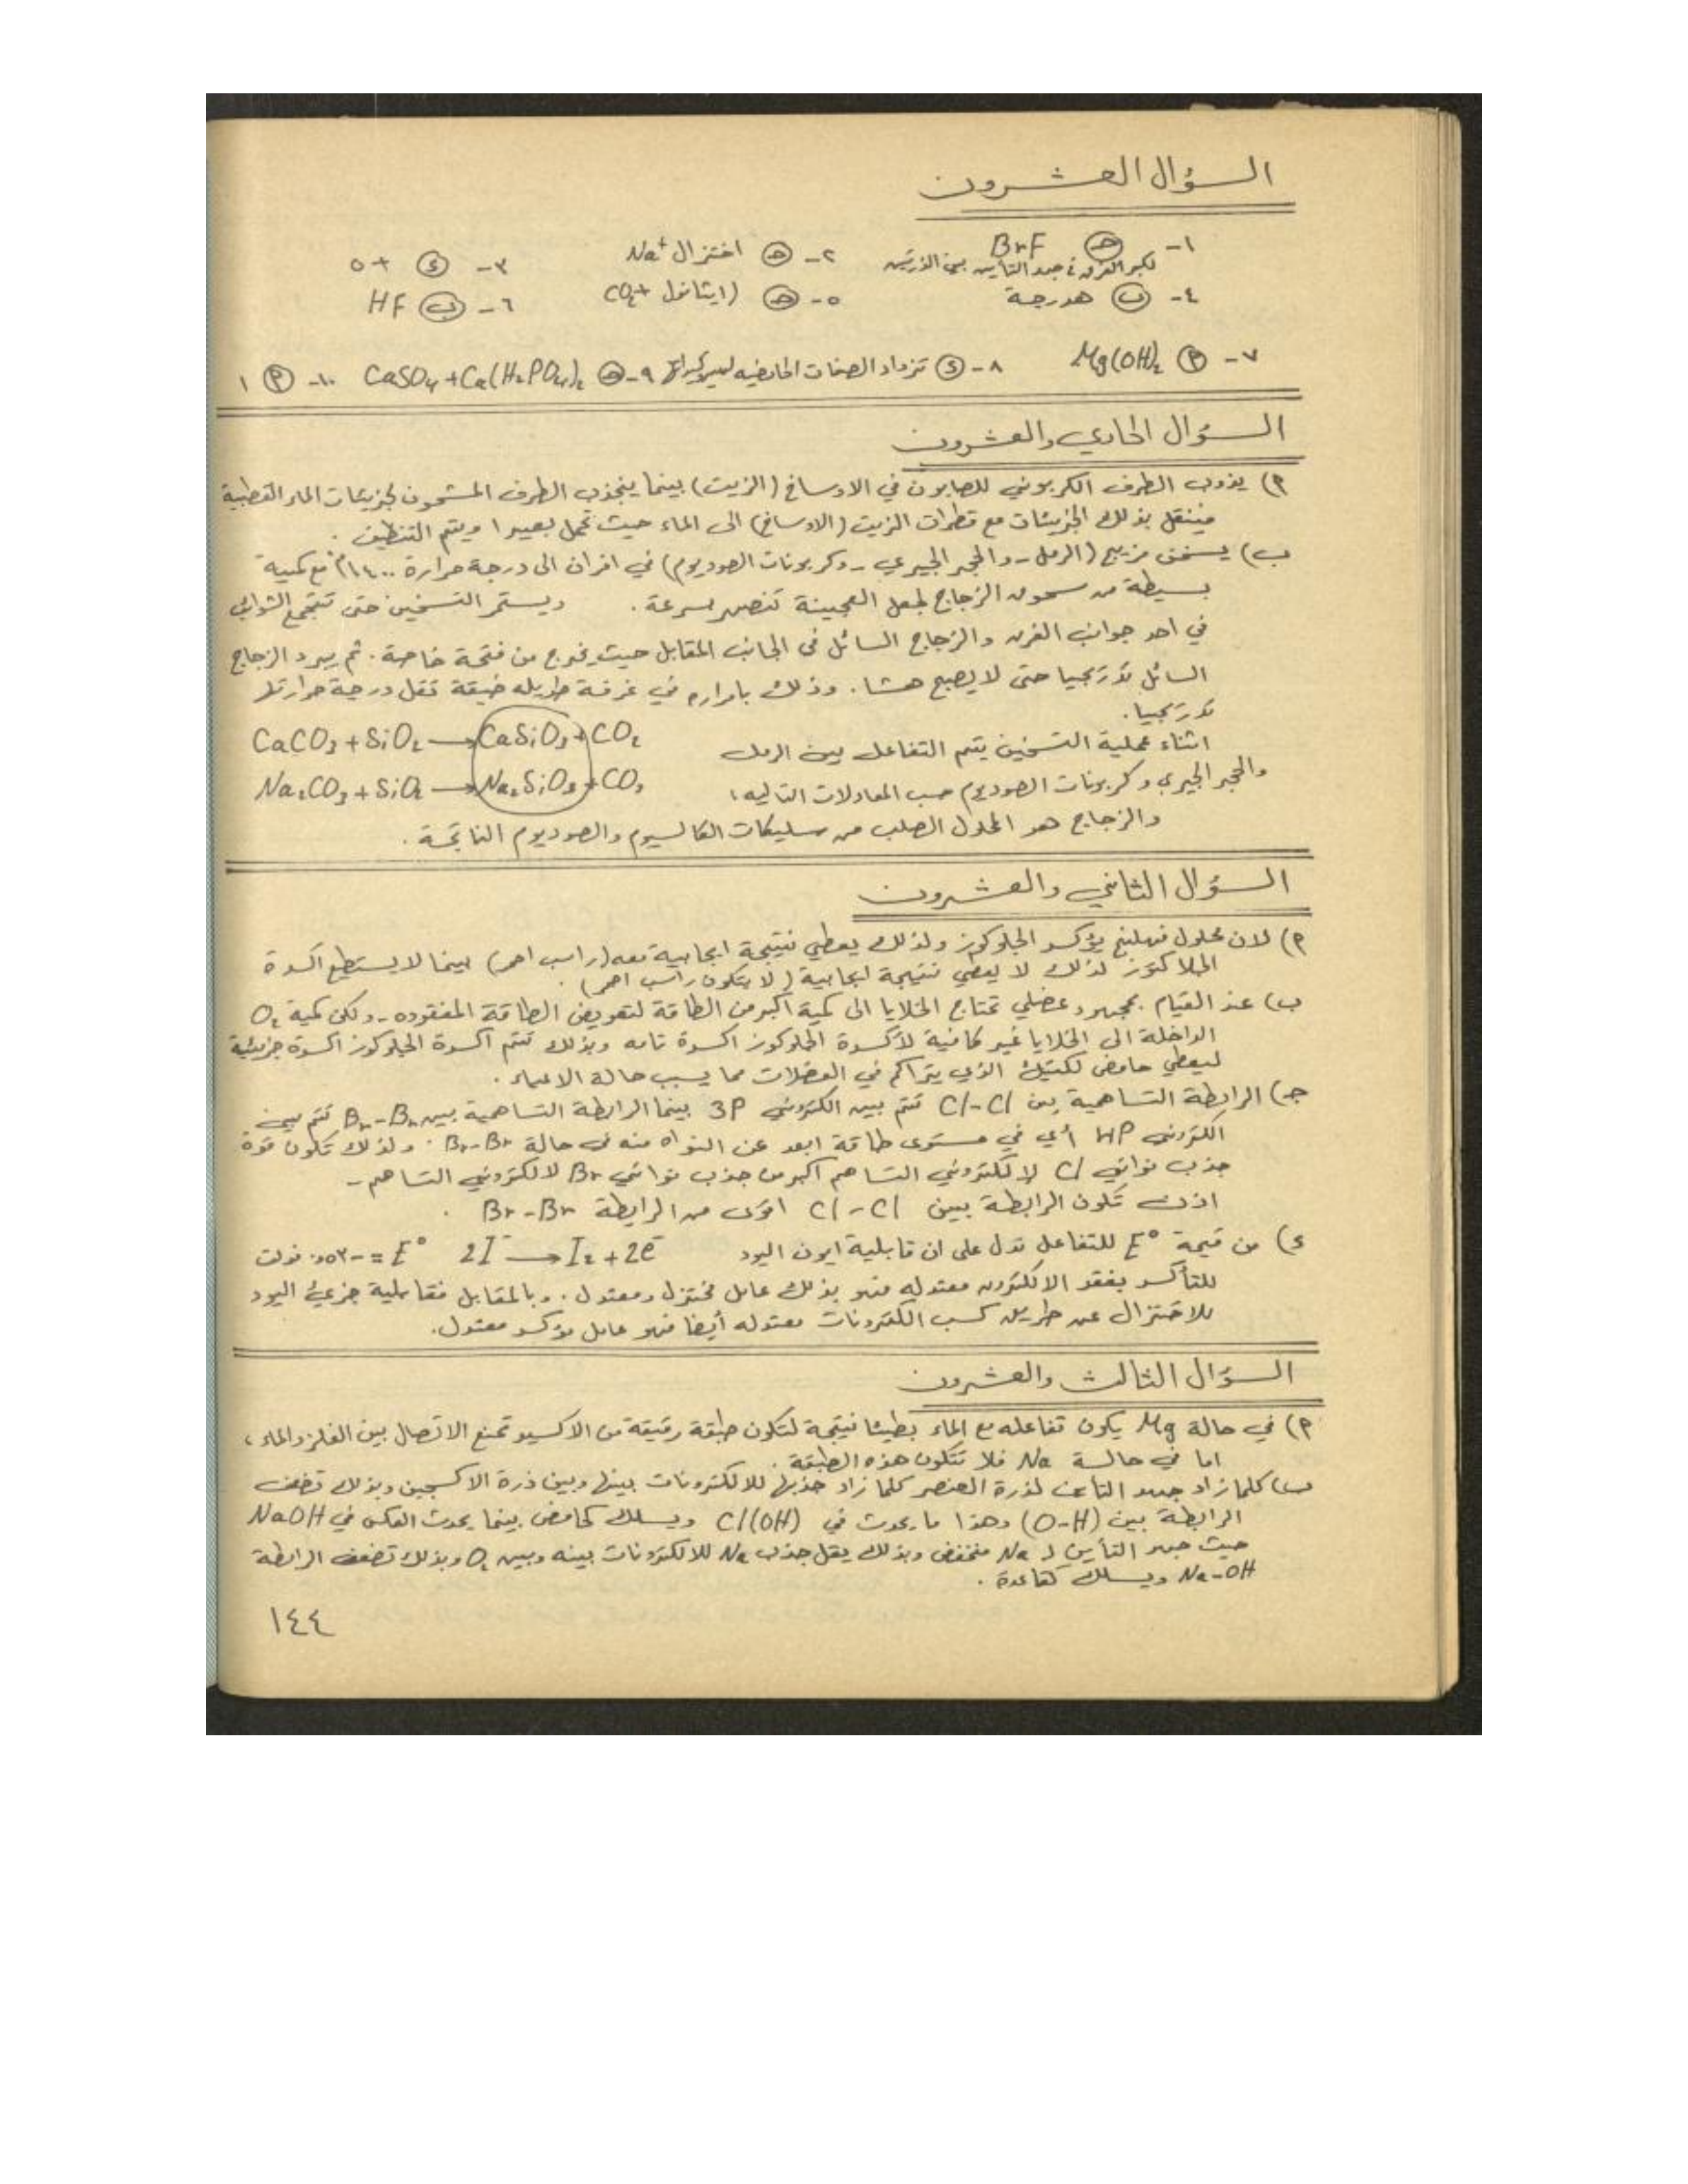 السؤال العشرون
١- (جـ) BrF ٢- (جـ) اختزال Na+ ٣- (د) +٥
لكبر الفرق في جهد التأين بين الذرتين
٤- (ب) هدرجة ٥- (جـ) (ايثانول + CO₂ ٦- (ب) HF
٧- (أ) Mg(OH)₂ ٨- (د) تزداد الصفات الحامضيه ٩- (جـ) CaSO₄ + Ca(H₂PO₄)₂ ١٠- (أ) ١
السؤال الحادي والعشرون
أ) يذوب الطرف الكربوني للصابون في الاوساخ (الزيت) بينما ينجذب الطرف المشحون لجزيئات الماء القطبية
فينتقل بذلك الجزيئات مع قطرات الزيت (الاوساخ) الى الماء حيث تحمل بعيدا ويتم التنظيف .
ب) يسخن مزيج (الرمل - والحجر الجيري - وكربونات الصوديوم) في افران الى درجة حرارة ١٤٠٠°م مع كمية
بسيطة من مسحوق الزجاج لجعل العجينة تنصهر بسرعة . ويستمر التسخين حتى تتجمع الشوائب
في احد جوانب الفرن والزجاج السائل في الجانب المقابل حيث يخرج من فتحة خاصة . ثم يبرد الزجاج
السائل تدريجيا حتى لا يصبح هشا . وذلك بامراره في غرفة طويله ضيقة تقل درجة حرارتها
تدريجيا .
اثناء عملية التسخين يتم التفاعل بين الرمل CaCO₃ + SiO₂ → CaSiO₃ + CO₂
والحجر الجيري وكربونات الصوديوم حسب المعادلات التاليه : Na₂CO₃ + SiO₂ → Na₂SiO₃ + CO₂
والزجاج هو المحلول الصلب من سليكات الكالسيوم والصوديوم الناتجة .
السؤال الثاني والعشرون
أ) لان محلول فهلنج يؤكسد الجلوكوز ولذلك يعطي نتيجة ايجابية معه (راسب احمر) بينما لا يستطيع اكسدة
الجلاكتوز لذلك لا يعطي نتيجة ايجابية (لا يتكون راسب احمر) .
ب) عند القيام بمجهود عضلي تحتاج الخلايا الى كمية اكبر من الطاقة لتعويض الطاقة المفقوده - ولكن كمية O₂
الداخلة الى الخلايا غير كافية لأكسدة الجلوكوز اكسدة تامه وبذلك تتم اكسدة الجلوكوز اكسدة جزيئية
ليعطي حامض لكتيك الذي يتراكم في العضلات مما يسبب حالة الاعياء .
جـ) الرابطة التساهمية بين Cl-Cl تتم بين الكتروني 3P بينما الرابطة التساهمية بين Br-Br تتم بين
الكتروني 4P أي في مستوى طاقة ابعد عن النواه منه في حالة Br-Br . ولذلك تكون قوة
جذب نواتي Cl لالكتروني التساهم اكبر من جذب نواتي Br لالكتروني التساهم -
اذن تكون الرابطة بين Cl-Cl اقوى من الرابطة Br-Br .
د) من قيمة E° للتفاعل تدل على ان قابلية ايون اليود 2I⁻ → I₂ + 2e⁻ E° = -٠,٥٣ فولت
للتأكسد بفقد الالكترون معتدله فهو بذلك عامل مختزل ومعتدل . وبالمقابل فقابلية جزيء اليود
للاختزال عن طريق كسب الكترونات معتدله أيضا فهو عامل مؤكسد معتدل .
السؤال الثالث والعشرون
أ) في حالة Mg يكون تفاعله مع الماء بطيئا نتيجة لتكون طبقة رقيقة من الاكسيد تمنع الاتصال بين الفلز والماء ،
اما في حالة Na فلا تتكون هذه الطبقة .
ب) كلما زاد جهد التأين لذرة العنصر كلما زاد جذبها للالكترونات بينها وبين ذرة الاكسجين وبذلك تضعف
الرابطة بين (O-H) وهذا ما يحدث في Cl(OH) ويسلك كحامض بينما يحدث العكس في NaOH
حيث جهد التأين لـ Na منخفض وبذلك يقل جذب Na للالكترونات بينه وبين O₂ وبذلك تضعف الرابطة
Na-OH ويسلك كقاعدة .
١٤٤